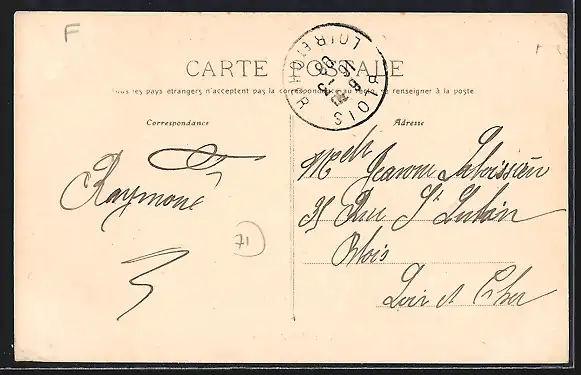 F
CARTE POSTALE
Tous les pays étrangers n'acceptent pas la correspondance au recto, se renseigner à la poste
BLOIS
LOIR ET CHER
Correspondance
Adresse
Raymond
71
Melle Jeanne
35 Rue St Lubin
Blois
Loir et Cher